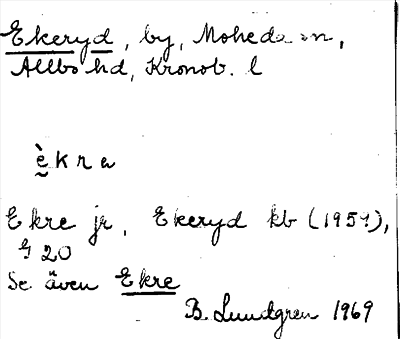 Ekeryd, by, Moheda sn,
Allbo hd, Kronob. l
èkra
Ekre jr, Ekeryd kb (1951),
§ 20
Se även Ekre
B. Lundgren 1969